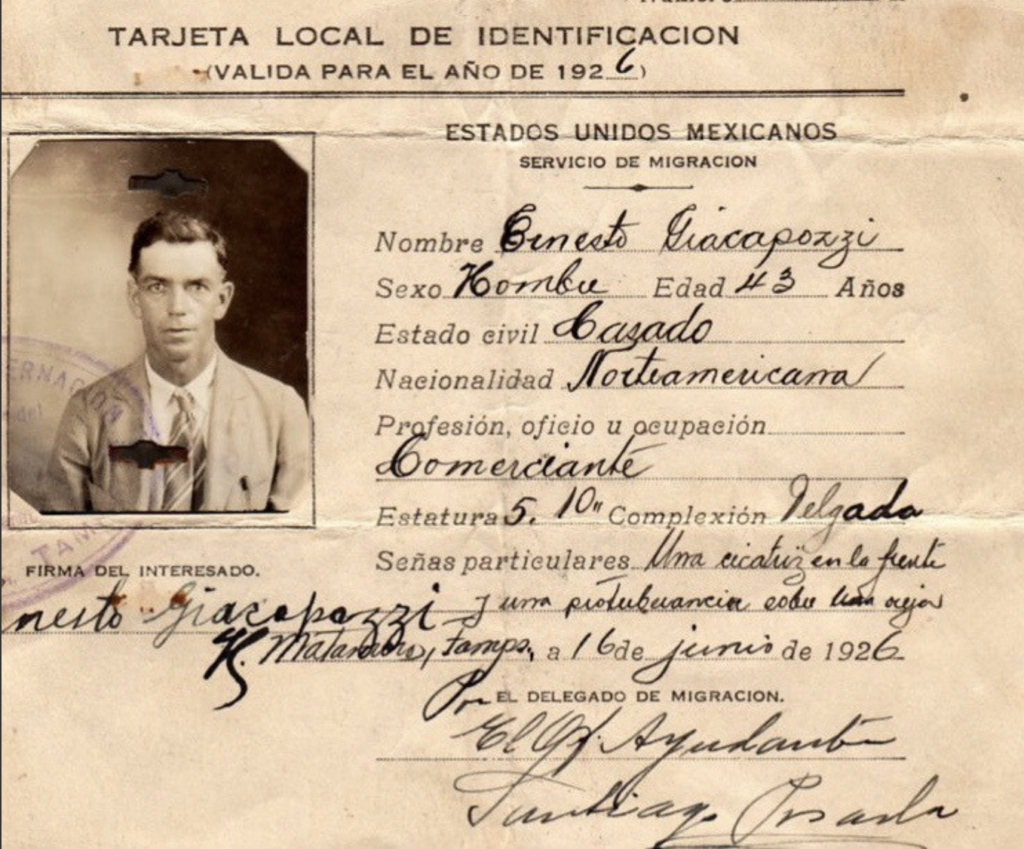 TARJETA LOCAL DE IDENTIFICACION
(VALIDA PARA EL AÑO DE 1926)
ESTADOS UNIDOS MEXICANOS
SERVICIO DE MIGRACION
Nombre Ernesto Giacapozzi
Sexo Hombre Edad 43 Años
Estado civil Casado
Nacionalidad Norteamericana
Profesión, oficio u ocupación
Comerciante
Estatura 5. 10" Complexión Delgada
Señas particulares Una cicatriz en la frente
y una protuberancia sobre una oreja
ERNACION
TAM
FIRMA DEL INTERESADO.
nesto Giacapozzi
H. Matamoros, Tamps., a 16 de junio de 1926
Por EL DELEGADO DE MIGRACION.
El Ayudante
Santiago Posada